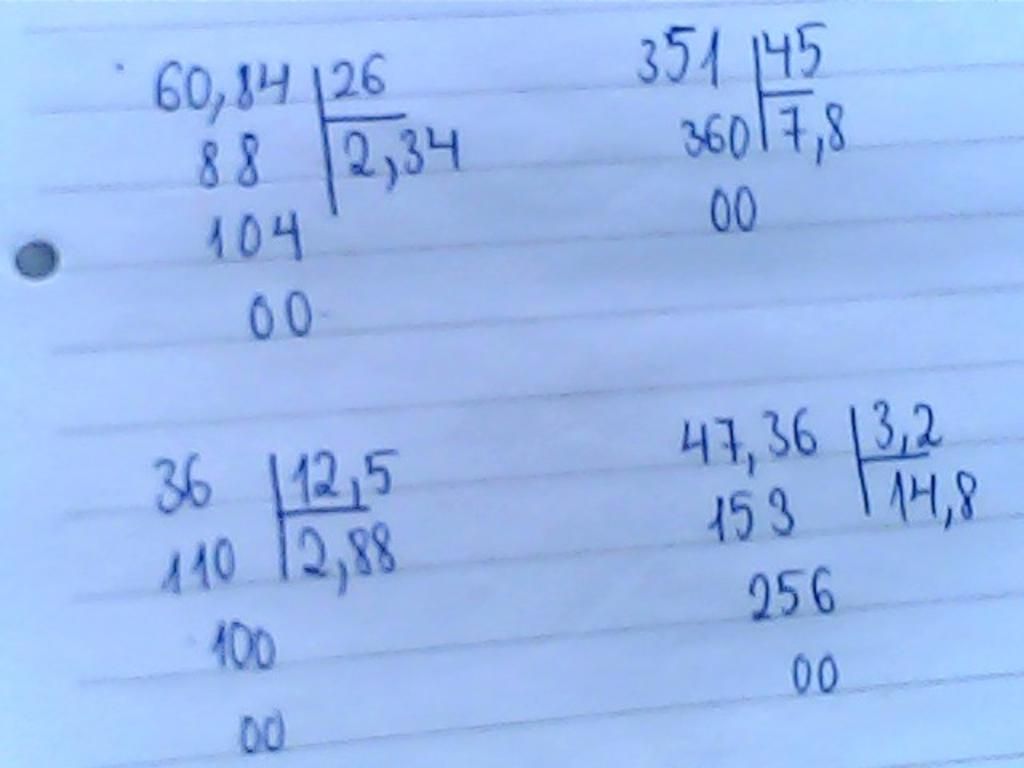 60,84 26
88 2,34
104
00
351 45
360 7,8
00
36 12,5
110 2,88
100
00
47,36 3,2
153 14,8
256
00